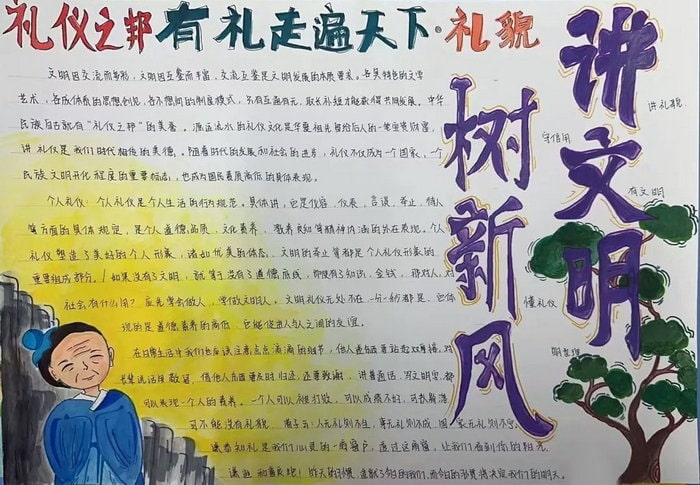 礼仪之邦 有礼走遍天下·礼貌
讲文明
树新风
讲礼貌
守信用
有文明
懂礼仪
明事理
文明因交流而多彩，文明因互鉴而丰富，交流互鉴是文明发展的本质要求。各具特色的文学
艺术，各成体系的思想创见，各不想同的制度模式，只有互通有无，取长补短才能获得共同发展。中华
民族自古就有“礼仪之邦”的美誉。源远流水的礼仪文化是华夏祖先留给后人的一笔宝贵财富，
讲礼仪是我们时代相传的美德。随着时代的发展和社会的进步，礼仪不仅成为一个国家、一个
民族文明开化程度的重要标志，也成为国民素质高低的具体表现。
个人礼仪：个人礼仪是个人生活的行为规范。具体讲，它是仪容、仪表、言谈、举止、待人
等方面的具体规定，是个人道德品质、文化素养、教养良知等精神内涵的外在表现。个人
礼仪塑造了美好的个人形象，诸如优美的体态、文明的举止等都是个人礼仪形象的
重要组成部分。如果没有了文明，就等于没有了道德底线，即使有了知识，金钱，那对人对
社会有什么用？应先学会做人，学做文明人。文明礼仪无处不在一分一秒都是，它体
现的是道德素养的高低，它能促进人与人之间的友谊。
在日常生活中我们也应该注意点点滴滴的细节，他人递东西要站起双手接，对
长辈说话用敬语，借他人东西要及时归还，还要致谢，讲普通话，写文明字，都
可以表现一个人的素养。一个人可以被打败，可以成绩不好，可
可不能没有礼貌。荀子云：人无礼则不生，事无礼则不成，国家无礼则不宁。
知礼是我们心灵的一扇窗户，透过这扇窗，让我们看到你的阳光、
谦逊和
昨天的习惯，造就了今日的我们，而今日的习惯将决定我们的明天。